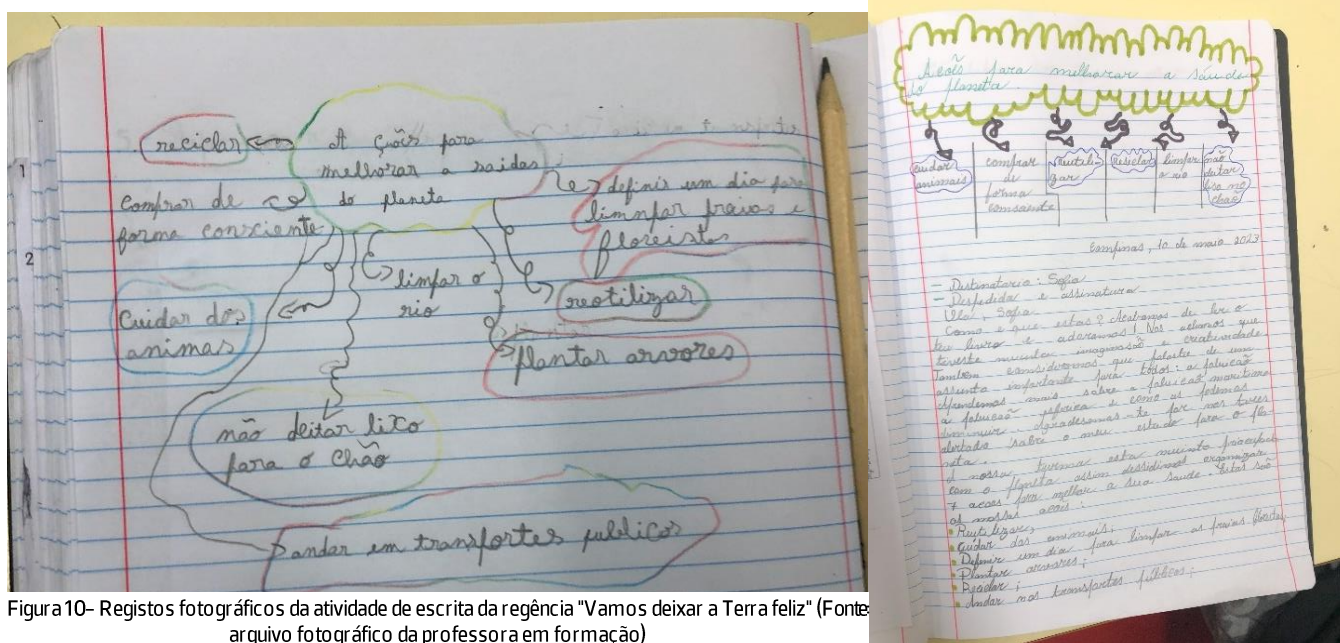 1
2
reciclar
A çoõs para
melhorar a saidas
do planeta
Comprar de
forma consciente
definir um dia para
limnpar praias e
floreistas
limpar o
rio
reotilizar
Cuidar dos
animas
plantar arvores
não deitar lixo
para o chão
andar em transportes publicos
Figura 10– Registos fotográficos da atividade de escrita da regência "Vamos deixar a Terra feliz" (Fonte:
arquivo fotográfico da professora em formação)
Acoẽs para melhorar a saude
do planeta
cuidar
animais
comprar
de
forma
reutili-
zar
reciclar
limpar
o rio
não
deitar
lixo no
chão
10 de maio 2023
– Destinataria: Sofia
– Despedida e assinatura
Ola, Sofia
Como é que estas? Acabamos de ler o
teu livro e adoramos! Nos achamos que
tiveste muinta imaginasão e criatividade
Tambem consideramos que falaste de um
assunto importante para todos: a poluicão
Aprendemos mais sobre a poluicão maritima
a poluicão e como as podemos
diminuir. Agradesemos-te por nos teres
alertado sobre o meu estado para o pla-
neta.
A nossa turma esta muinto
com o planeta assim organizar
7 acoes por melhor a sua saude. Estas são
as nossas acois:
Reutilizar;
Cuidar dos animais;
Definir um dia para limpar as praias
Plantar arvores;
Reciclar;
andar nos transportes públicos;